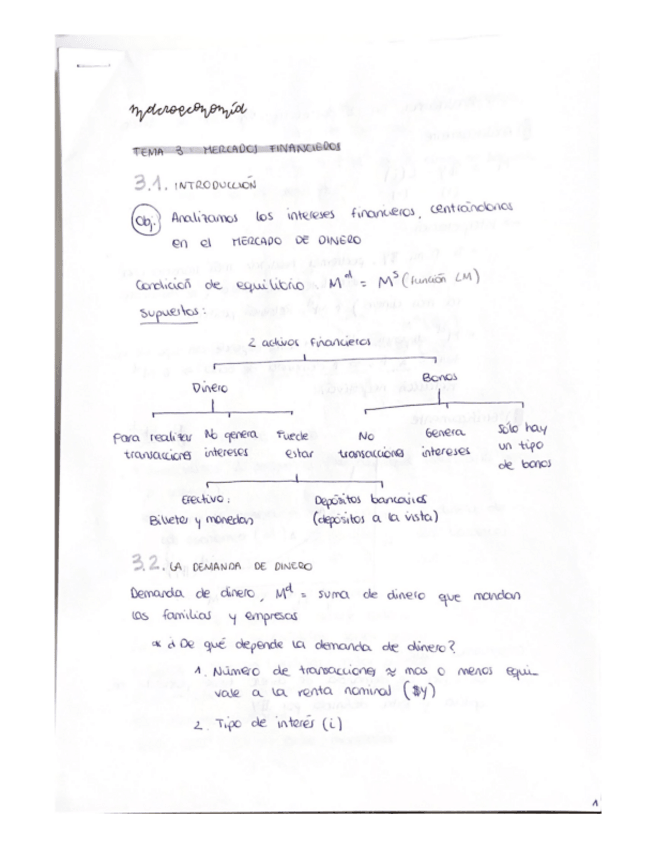 Macroeconomía
TEMA 3: MERCADOS FINANCIEROS
3.1. INTRODUCCIÓN
Obj. Analizamos los intereses financieros, centrándonos
en el MERCADO DE DINERO
Condición de equilibrio M^d = M^s (función LM)
Supuestos:
2 activos financieros
Dinero
Bonos
Para realizar transacciones
No genera intereses
Puede estar
No transacciones
Genera intereses
Sólo hay un tipo de bonos
Efectivo:
Billetes y monedas
Depósitos bancarios
(depósitos a la vista)
3.2. LA DEMANDA DE DINERO
Demanda de dinero, M^d = suma de dinero que mandan
las familias y empresas
* ¿De qué depende la demanda de dinero?
1. Número de transacciones ≈ mas o menos equi-
vale a la renta nominal ($y)
2. Tipo de interés (i)
1